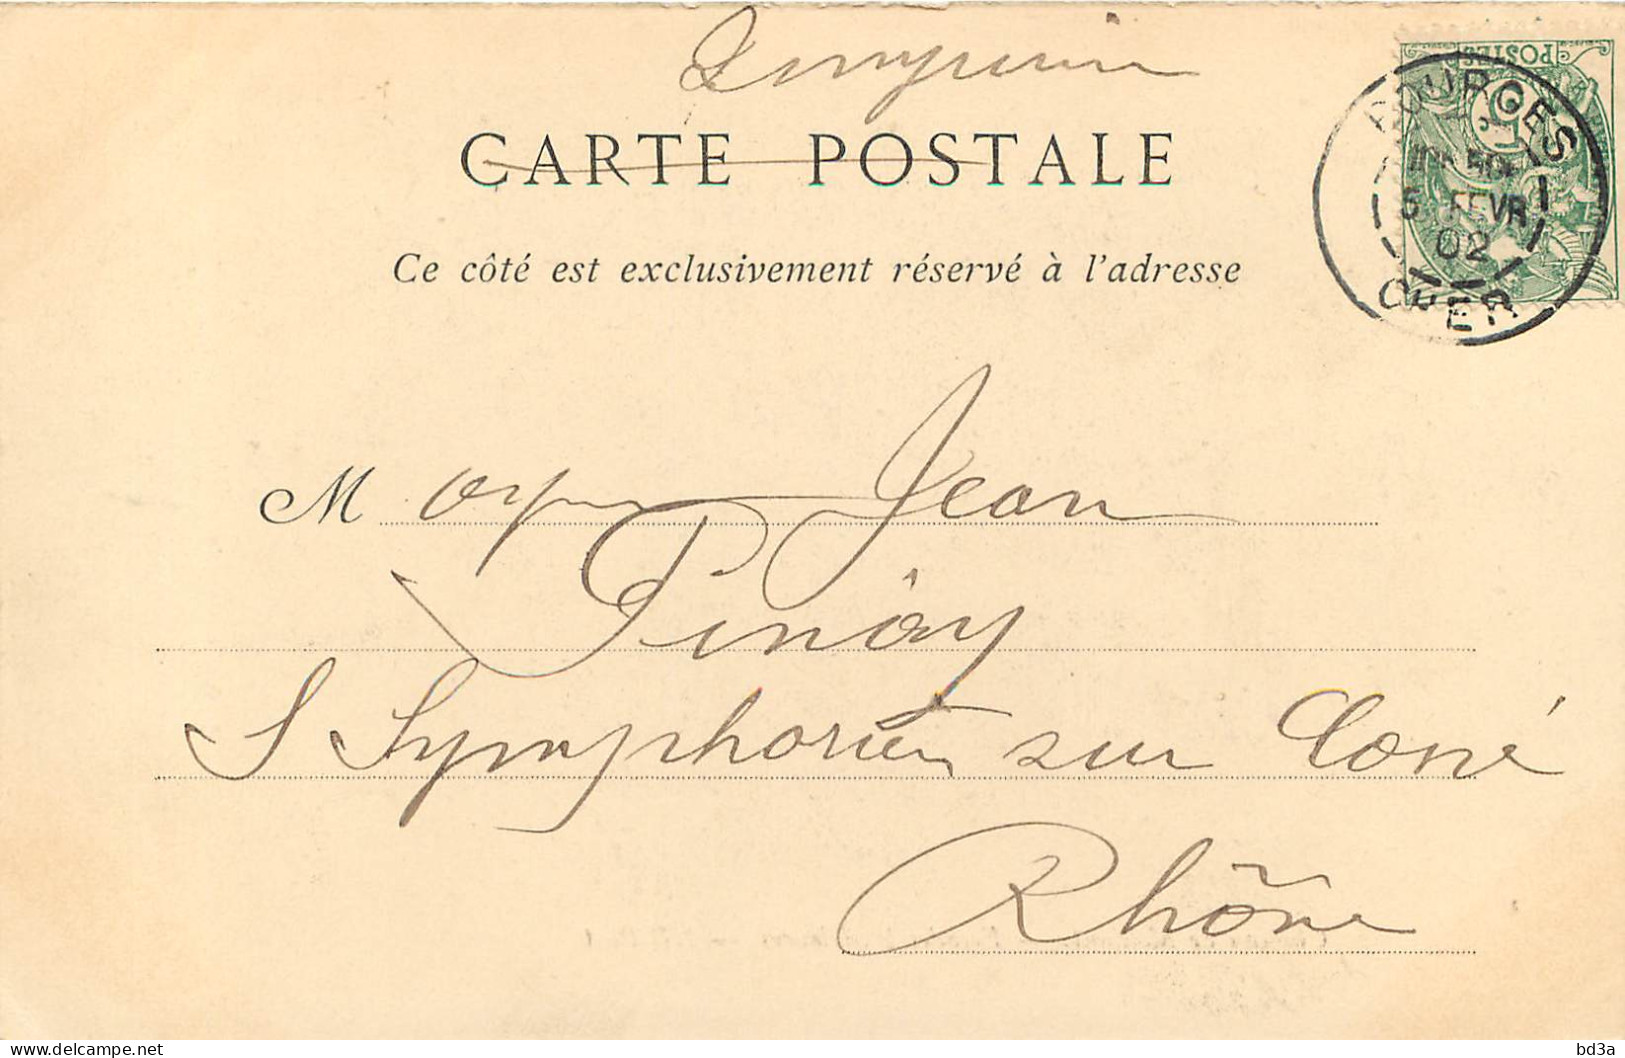 Imprimé
CARTE POSTALE
Ce côté est exclusivement réservé à l'adresse
POSTES
BOURGES
5 FEVR
02
CHER
M Jean
Pinay
S Symphorien sur Coise
Rhône
bd3a